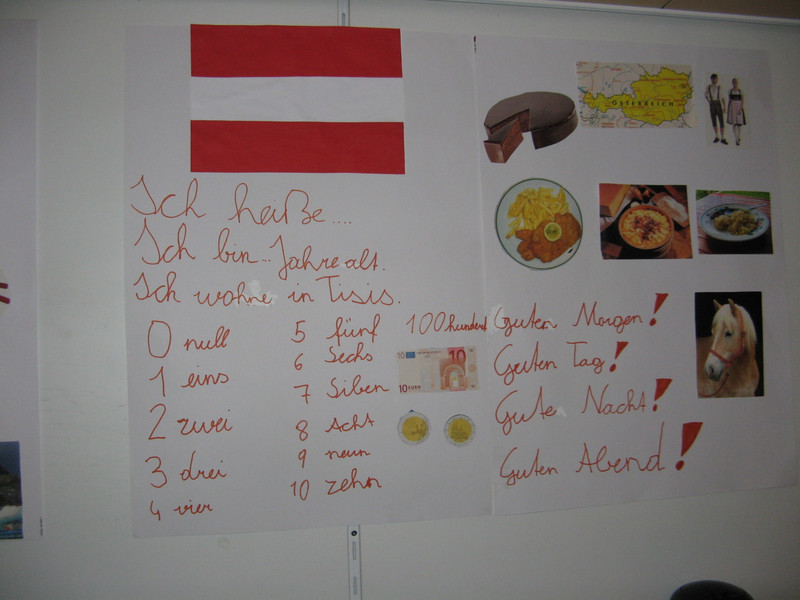 Ich heiße....
Ich bin... Jahre alt.
Ich wohne in Tisis.
0 null
1 eins
2 zwei
3 drei
4 vier
5 fünf
6 Sechs
7 Siben
8 Acht
9 neun
10 zehn
100 hundert
10 10
10 EURO
ÖSTERREICH
Guten Morgen!
Guten Tag!
Gute Nacht!
Guten Abend!